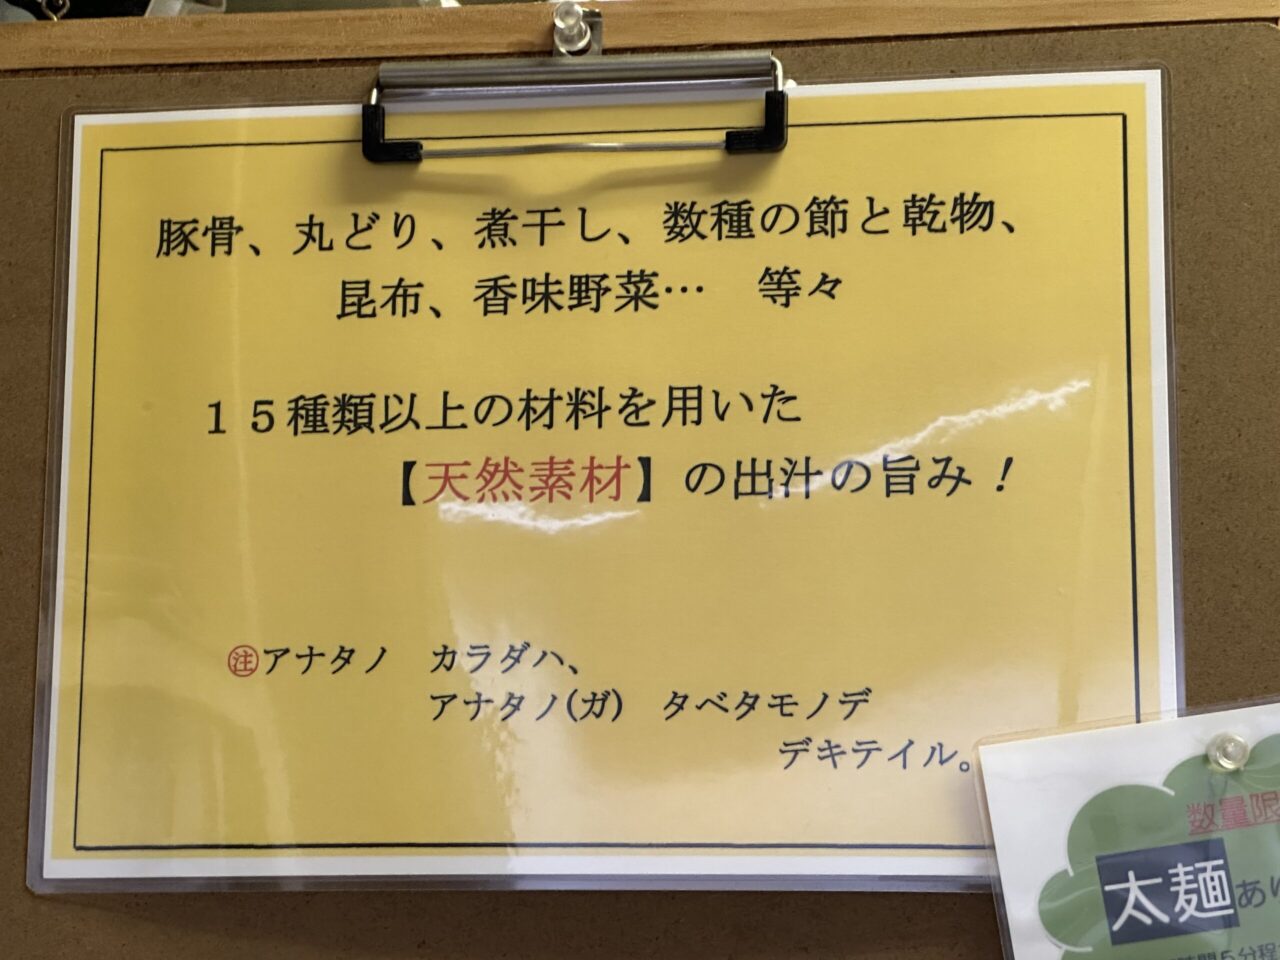 豚骨、丸どり、煮干し、数種の節と乾物、
昆布、香味野菜… 等々
１５種類以上の材料を用いた
【天然素材】の出汁の旨み！
㊟アナタノ カラダハ、
アナタノ(ガ) タベタモノデ
デキテイル。
数量限
太麺あり